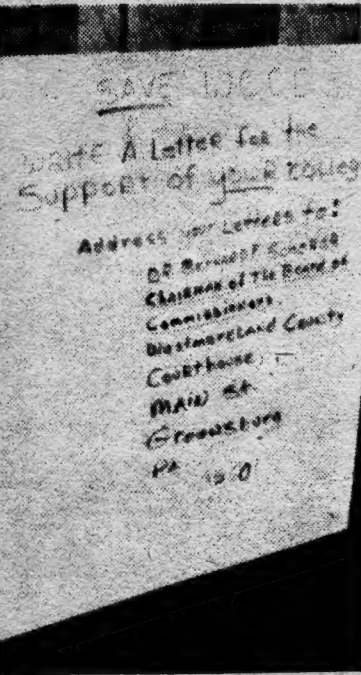 SAVE WCCC
Write A Letter for the
Support of your colleg
Address your Letters to:
DR
Chairman of The Board of
Commissioners
Westmoreland County
Courthouse
MAIN St
Greensburg
PA